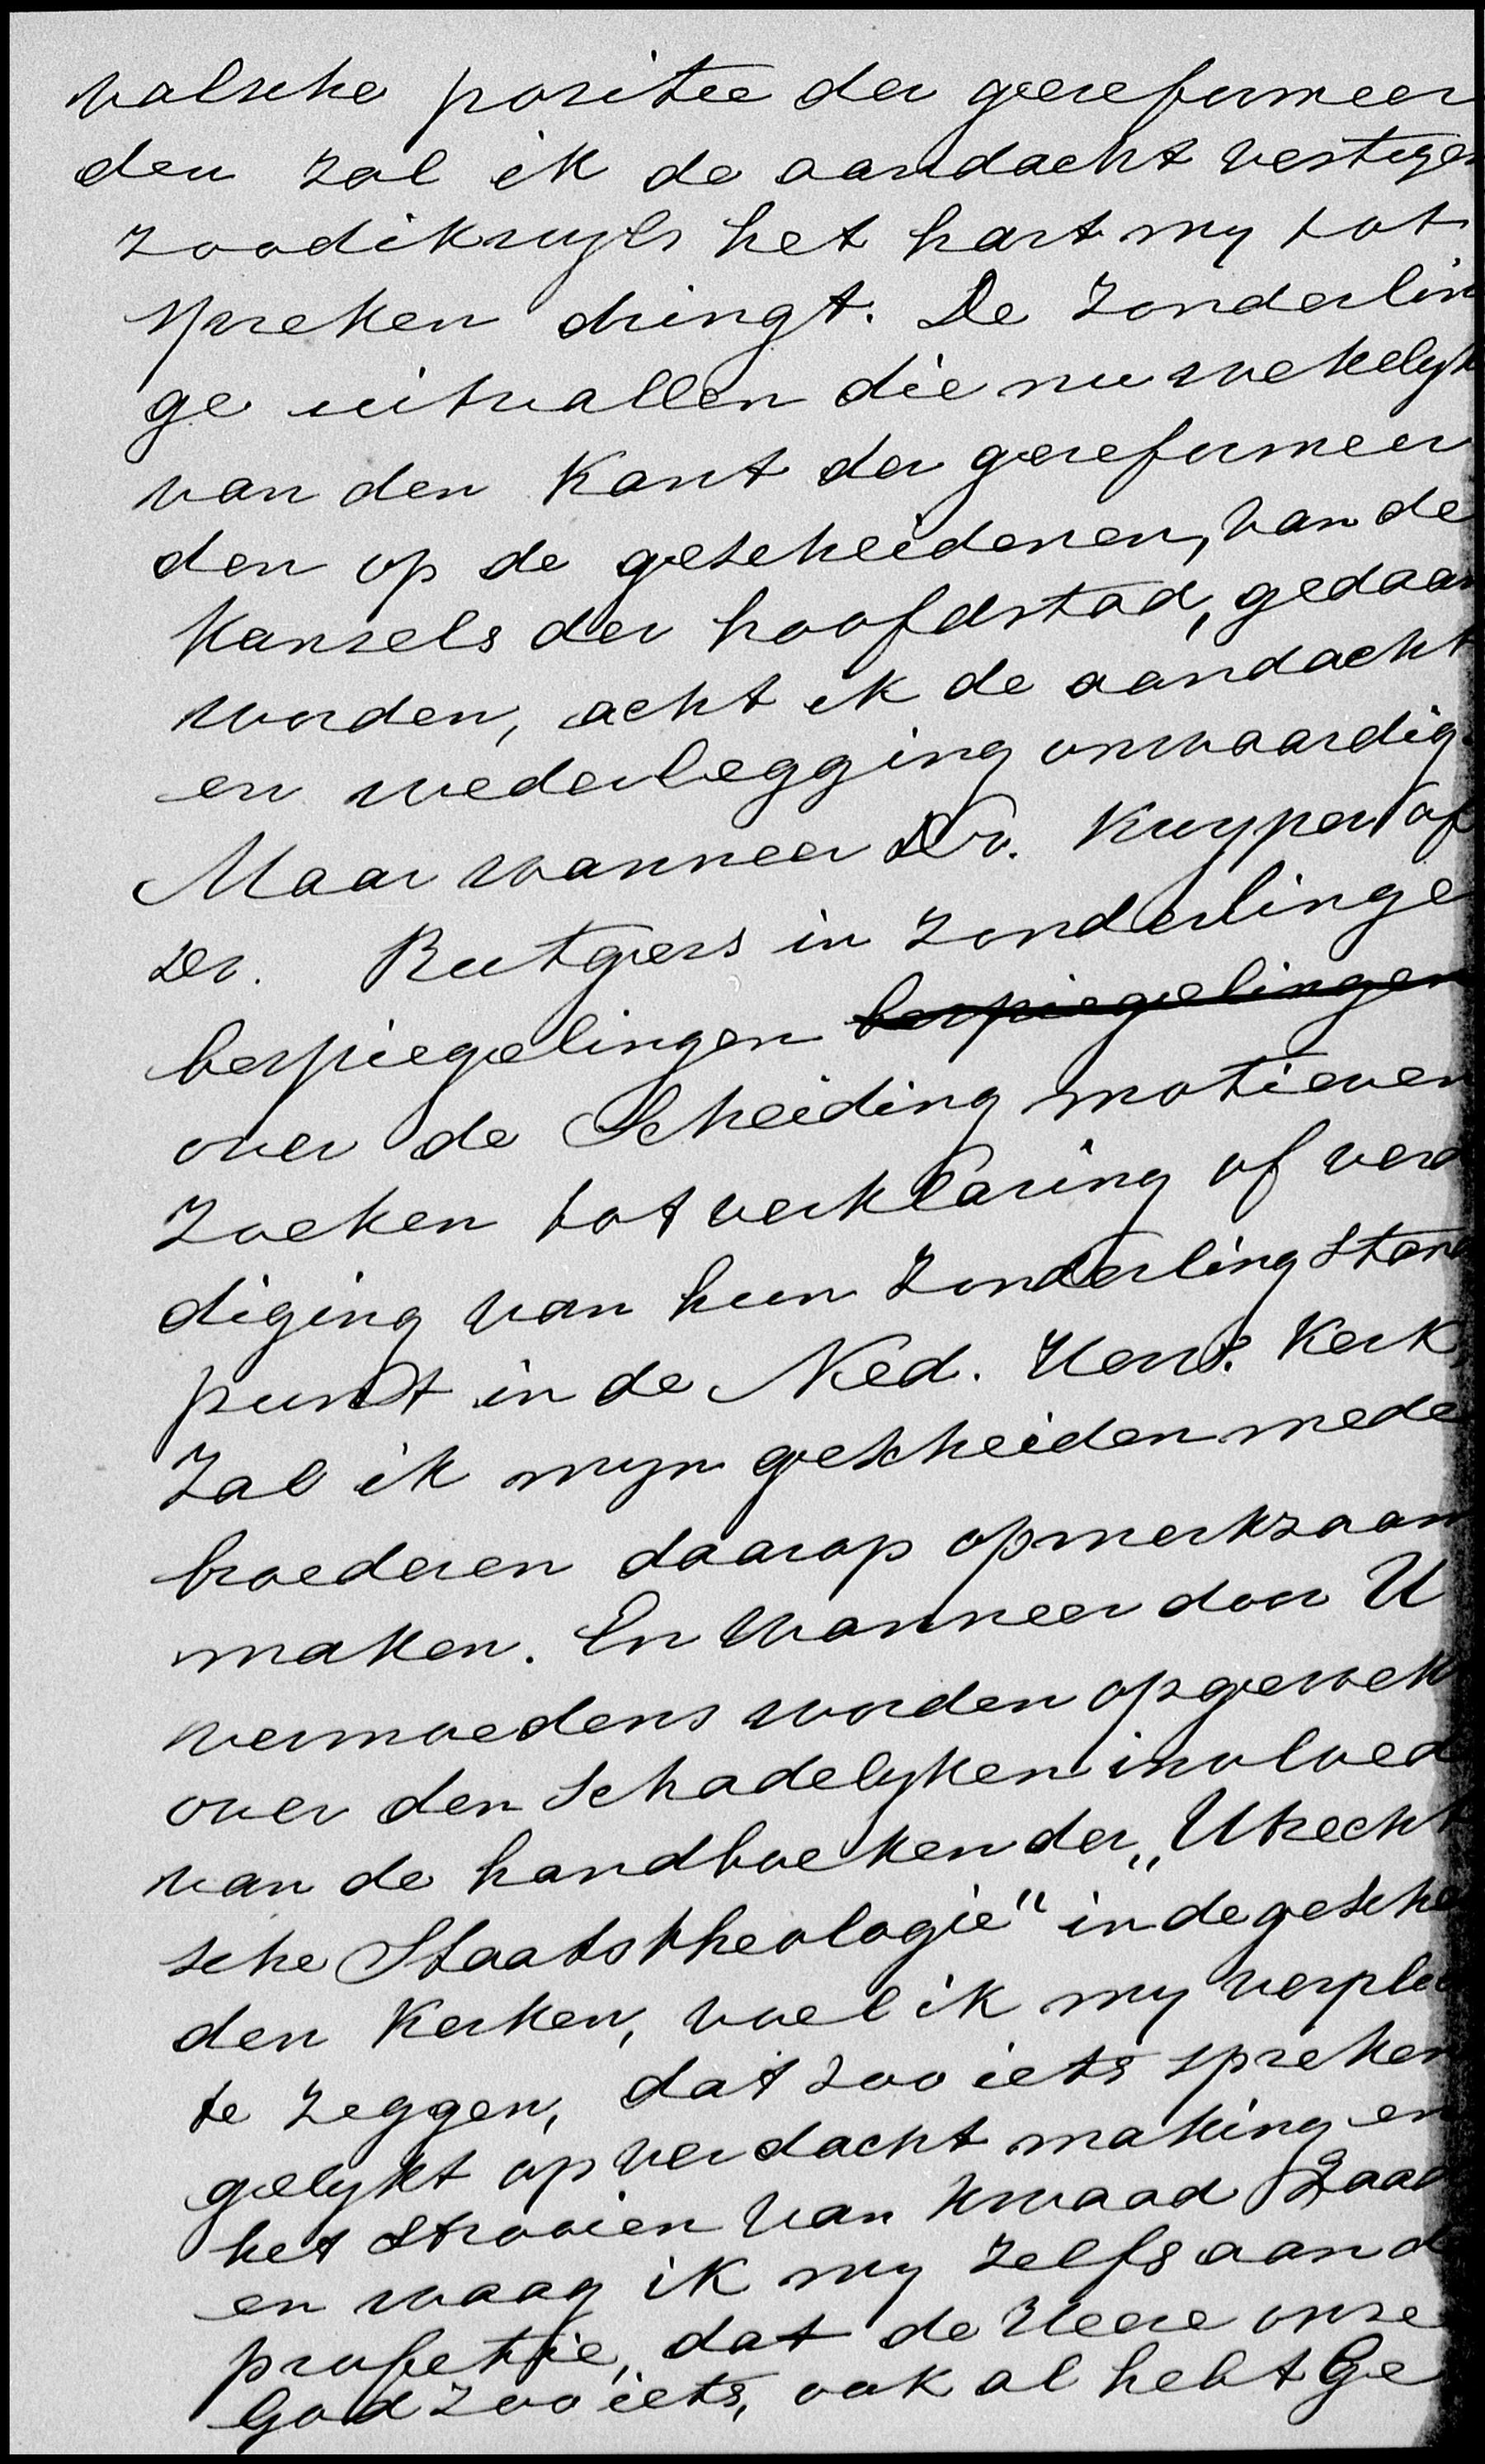 valsche positie der gereformeer
den zal ik de aandacht vestigen
zoodikwyls het hart my tot
spreken dringt. De zonderlin
ge uitvallen die nu wekelyk
van den kant der gereformeer
den op de gescheidenen, van de
kansels der hoofdstad, gedaan
worden, acht ik de aandacht
en wederlegging onwaardig.
Maar wanneer Dr. Kuyper of
Dr. Rutgers in zonderlinge
bespiegelingen bespiegelingen
over de Scheiding motieven
zoeken tot verklaring of verd
diging van hun zonderling stand
punt in de Ned. Herv. Kerk,
Zal ik myn gescheiden mede
broederen daarop opmerkzaam
maken. En wanneer door U
vermoedens worden opgewekt
over den schadelyken invloed
van de handboeken der „Utrecht
sche Staatstheologie" in de geschei
den Kerken, voel ik my verplic
te zeggen, dat zoo iets spreken
gelykt op verdacht making en
het strooien van kwaad Zaad
en waag ik my zelfs aan d
profetie, dat de Heere onze
God zoo iets, ook al hebt Ge